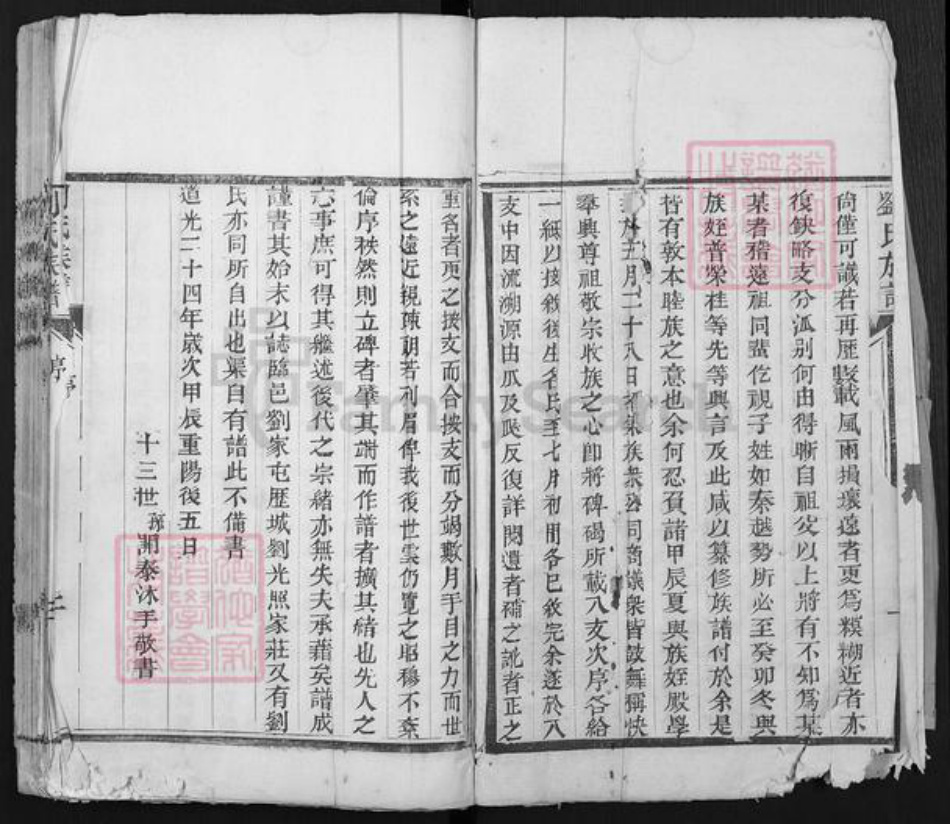 劉氏族譜
尚僅可識若再歷數載風雨損壞遠者更為糢糊近者亦
復缺略支分派别何由得晰自祖父以上將有不知為某
某者稽遠祖同蜚仡視子姓如秦越勢所必至癸卯冬與
族姪普榮桂等先等興言及此咸以纂修族譜付於余是
皆有敦本睦族之意也余何忍負諸甲辰夏與族姪殿學
於五月二十八日祠集族衆公同商議衆皆鼓舞稱快
羣興尊祖敬宗收族之心即將碑碣所載八支次序各給
一紙以接敘後生名氏至七月初間各已敘完余遂於八
支中因流溯源由瓜及瓞反復詳閱遺者補之訛者正之
重名者更之按支而合按支而分竭數月手目之力而世
系之遠近親疎朗若列眉俾我後世雲仍覽之昭穆不紊
倫序秩然則立碑者肇其端而作譜者擴其緒也先人之
志事庶可得其繼述後代之宗緒亦無失夫承藉矣譜成
謹書其始末以誌臨邑劉家屯歷城劉光照家莊又有劉
氏亦同所自出也渠自有譜此不備書
道光二十四年歲次甲辰重陽後五日
十三世孫開泰沐手敬書
劉氏族譜
序
序
二
一
FamilySearch